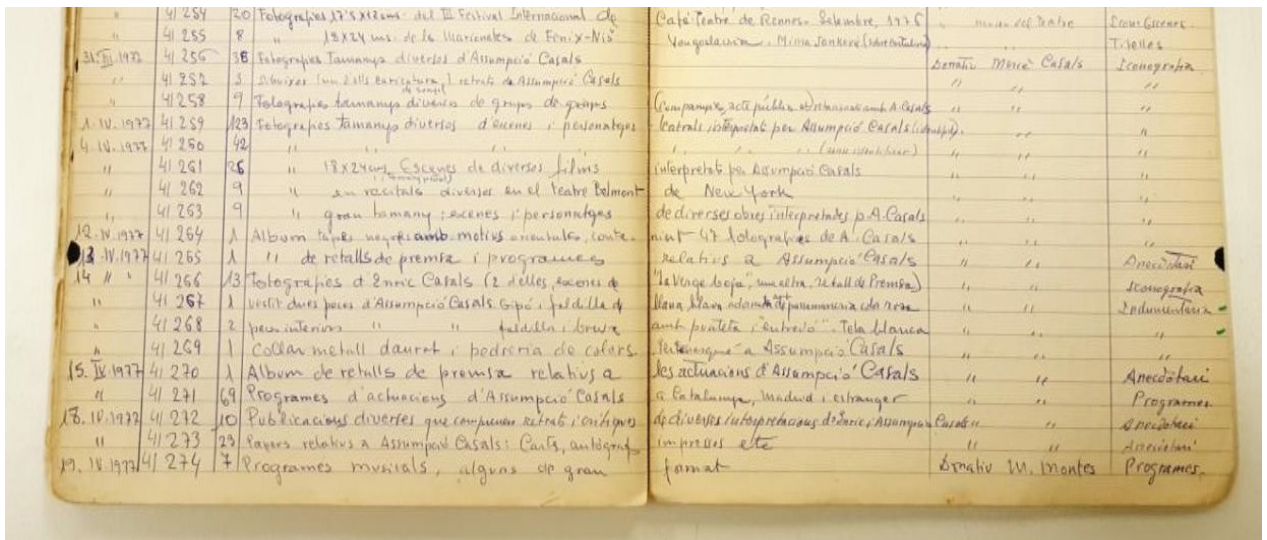 41 254 20 Fotografies 17'5 x 12 cms. del III Festival Internacional de Café Teatre de Rennes. Setembre, 1976 " Museu del Teatre Icon. Escenes.
" 41 255 8 " 18x24 cms. de les Marionetes de Fenix-Nis Yougoslavia. Titelles
31. III. 1977 41 256 38 Fotografies Tamanys diversos d'Assumpció Casals Donatiu Mercè Casals Iconografia
" 41 257 3 Dibuixos (un d'ells caricatura) retrats de Assumpció Casals " " "
" 41 258 9 Fotografies tamanys diversos de grups de (companyia, acte públic etc) " " "
1. IV. 1977 41 259 123 Fotografies Tamanys diversos d'escenes i personatges teatrals interpretats per Assumpció Casals " "
4. IV. 1977 41 260 42 " " " " " " (sense identificar) " " "
" 41 261 26 " 18x24 cms. Escenes de diversos films interpretats per Assumpció Casals " " "
" 41 262 9 " en recitals diversos en el teatre Belmont de New York " " "
" 41 263 9 " gran tamany: escenes i personatges de diverses obres interpretades p. A. Casals " " "
12. IV. 1977 41 264 1 Album tapes negres amb motius orientals, conte- nint 47 fotografies de A. Casals " " "
13. IV. 1977 41 265 1 " de retalls de premsa i programes relatius a Assumpció Casals " " Anecdotari
14 " " 41 266 13 Fotografies d'Enric Casals (2 d'elles, escenes de "la Verge boja", una altra, retall de Premsa) " " Iconografia
" 41 267 1 vestit dues peces d'Assumpció Casals Gipó i faldilla de llana blava " " Indumentaria
" 41 268 2 peces interiors " " faldilla i brusa amb punteta i "entredó". Tela blanca " " "
" 41 269 1 Collar metall daurat i pedreria de colors. a Assumpció Casals " " "
15. IV. 1977 41 270 1 Album de retalls de premsa relatius a les actuacions d'Assumpció Casals " " Anecdotari
" 41 271 69 Programes d'actuacions d'Assumpció Casals a Catalunya, Madrid i estranger " " Programes.
18. IV. 1977 41 272 10 Publicacions diverses que comprenen retrats i crítiques de diverses interpretacions d'Enric i Assumpció Casals " " Anecdotari
" 41 273 23 Papers relatius a Assumpció Casals: Carts, autógrafs impressos etc " " Anecdotari
19. IV. 1977 41 274 7 Programes musicals, alguns de gran format Donatiu M. Montes Programes.